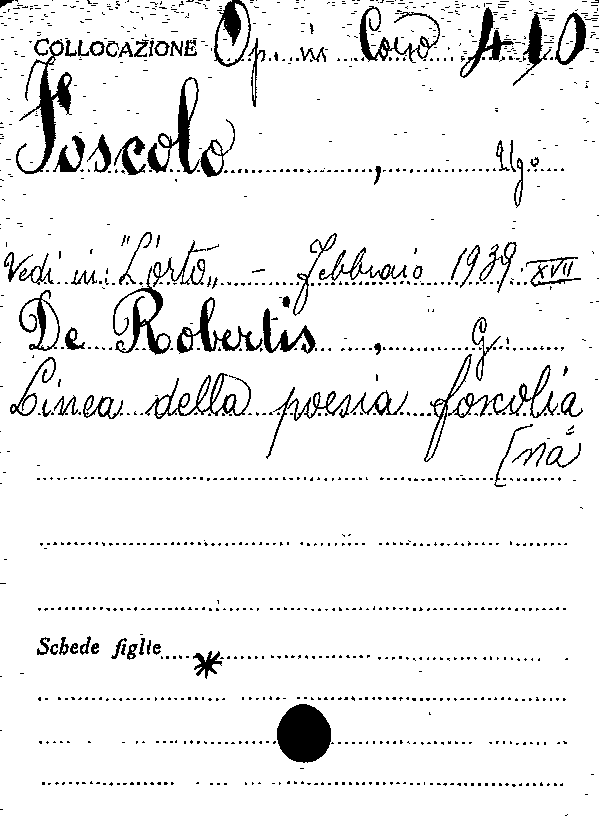 COLLOCAZIONE Op. in Coso 410
Foscolo, Ugo
Vedi in: "L'orto„ - Febbraio 1939. XVII
De Robertis, G.
Linea della poesia foscolia
[na"
Schede figlie